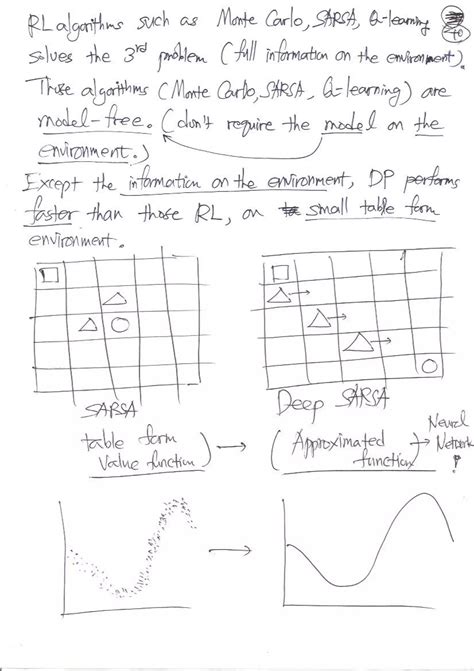 RL algorithms such as Monte Carlo, SARSA, Q-learning
solves the 3rd problem (full information on the environment).
Those algorithms (Monte Carlo, SARSA, Q-learning) are
model-free. (don't require the model on the
environment.)
Except the information on the environment, DP performs
faster than those RL, on small table form
environment.
SARSA
Deep SARSA
table form
value function)
(Approximated
function)
Neural
Network!